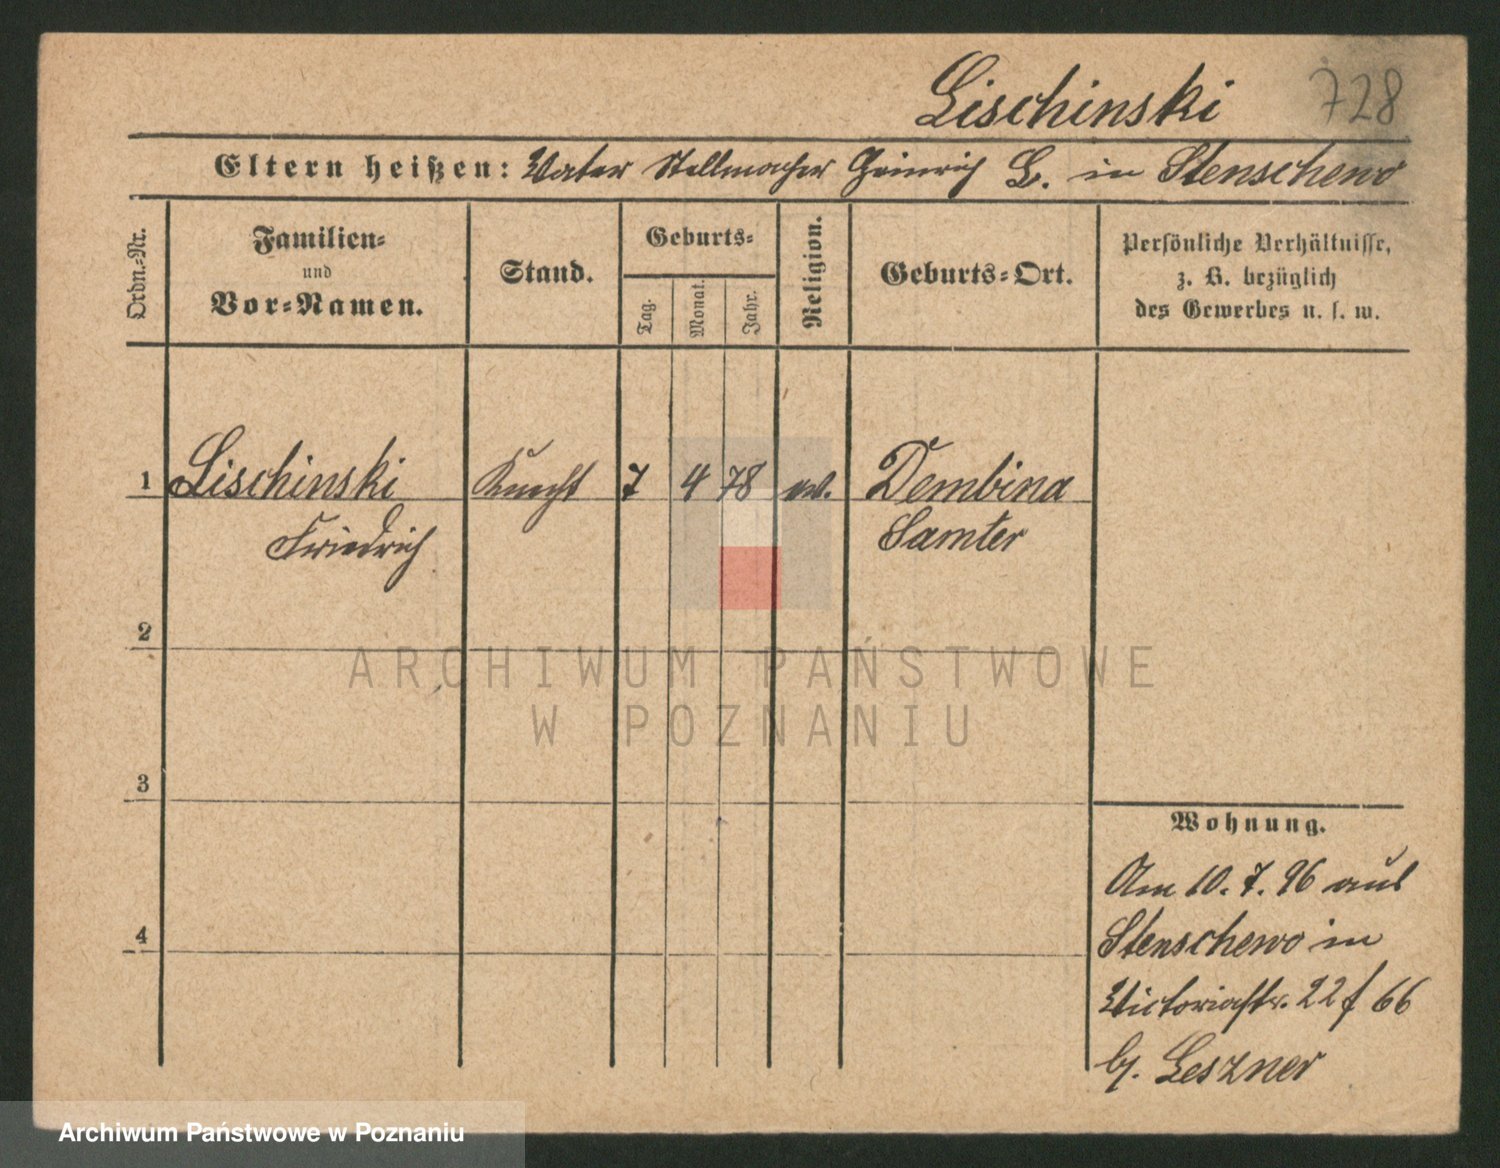 Lischinski 728
Eltern heißen: Vater Stellmacher Heinrich L. in Stenschewo
Ordn.-Nr.
Familien-
und
Vor-Namen.
Stand.
Geburts-
Tag.
Monat.
Jahr.
Religion.
Geburts-Ort.
Persönliche Verhältnisse,
z. B. bezüglich
des Gewerbes u. s. w.
1 Lischinski Knecht 7 4 78 ev. Dembina
Friedrich Samter
2
3
4
Wohnung.
Am 10. 7. 96 aus
Stenschewo in
Victoriastr. 22 f 66
b. Leszner
ARCHIWUM PAŃSTWOWE
W POZNANIU
Archiwum Państwowe w Poznaniu